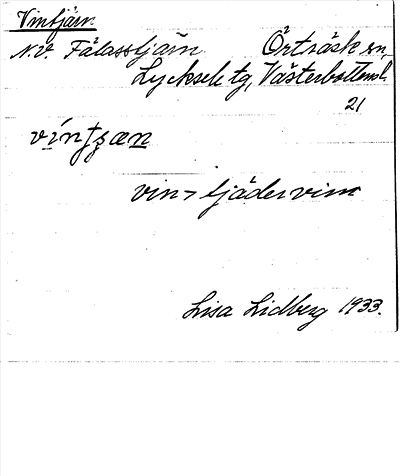 Vintjärn
N.V. Fälasstjärn Örträsk sn,
Lycksele tg, Västerbottens l.
21
vín
vin > tjädervin
Lisa Lidberg 1933.